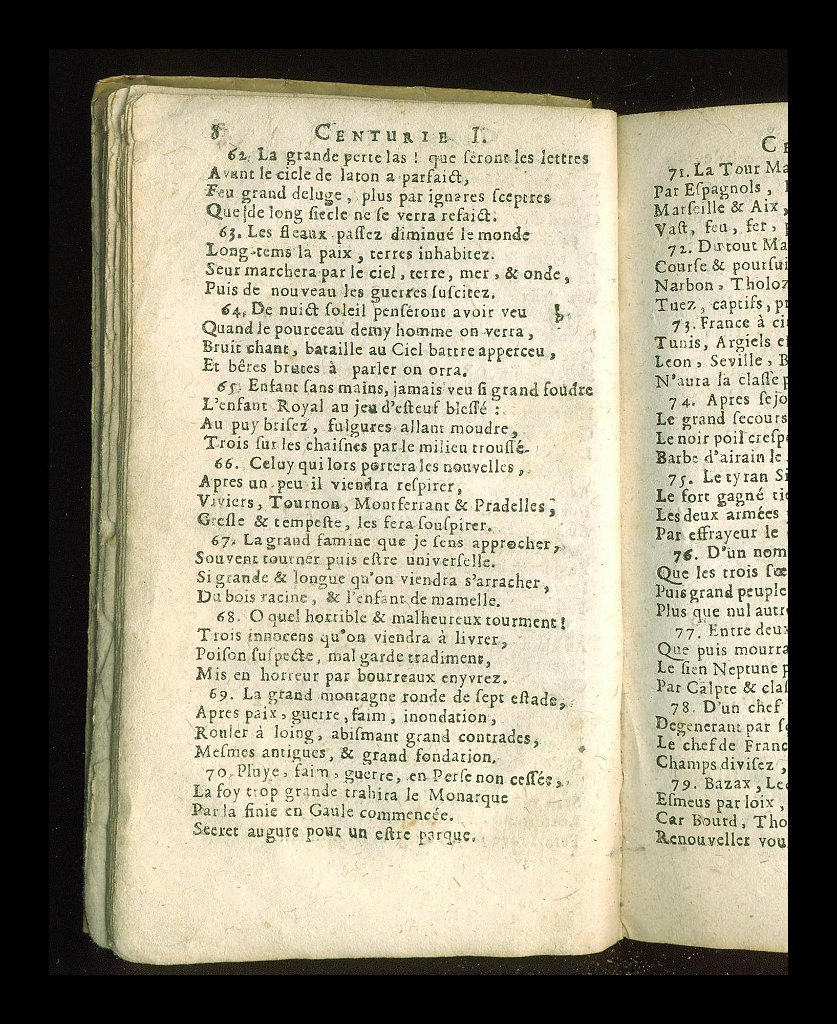 8 CENTURIE I.
62. La grande perte las ! que ſeront les lettres
Avant le cicle de laton a parfaict,
Feu grand deluge, plus par ignares ſceptres
Que de long ſiecle ne ſe verra refaict.
63. Les fleaux paſſez diminué le monde
Long-tems la paix, terres inhabitez.
Seur marchera par le ciel, terre, mer, & onde,
Puis de nouveau les guerres ſuſcitez.
64. De nuict ſoleil penſeront avoir veu
Quand le pourceau demy homme on verra,
Bruit chant, bataille au Ciel battre apperceu,
Et bêres brutes à parler on orra.
65. Enfant ſans mains, jamais veu ſi grand foudre
L'enfant Royal au jeu d'eſteuf bleſſé :
Au puy briſez, fulgures allant moudre,
Trois ſur les chaiſnes par le milieu trouſſé.
66. Celuy qui lors portera les nouvelles,
Apres un peu il viendra reſpirer,
Viviers, Tournon, Montferrant & Pradelles,
Greſle & tempeſte, les fera ſouſpirer.
67. La grand famine que je ſens approcher,
Souvent tourner puis eſtre univerſelle.
Si grande & longue qu'on viendra s'arracher,
Du bois racine, & l'enfant de mamelle.
68. O quel horrible & malheureux tourment !
Trois innocens qu'on viendra à livrer,
Poiſon ſuſpecte, mal garde tradiment,
Mis en horreur par bourreaux enyvrez.
69. La grand montagne ronde de ſept eſtade,
Apres paix, guerre, faim, inondation,
Rouler à loing, abiſmant grand contrades,
Meſmes antigues, & grand fondation.
70. Pluye, faim, guerre, en Perſe non ceſſée,
La foy trop grande trahira le Monarque
Par la finie en Gaule commencée.
Secret augure pour un eſtre parque.
71. La Tour
Par Eſpagnols,
Marſeille & Aix,
Vaſt, feu, fer,
72. Du tout
Courſe &
Narbon,
Tuez, captifs,
73. France à
Tunis, Argiels
Leon, Seville,
N'aura la claſſe
74. Apres
Le grand ſecours
Le noir poil
Barbe d'airain le
75. Le tyran
Le fort gagné
Les deux armées
Par effrayeur le
76. D'un
Que les trois
Puis grand peuple
Plus que nul
77. Entre
Que puis
Le ſien Neptune
Par Calpte &
78. D'un chef
Degenerant par
Le chef de
Champs diviſez,
79. Bazax,
Eſmeus par loix,
Car Bourd,
Renouveller